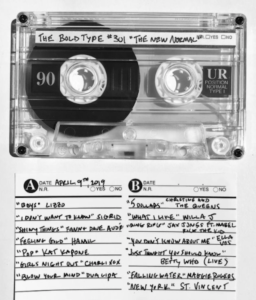 THE BOLD TYPE #301 "THE NEW NORMAL"
YES NO
90
UR
POSITION
NORMAL
TYPE I
A DATE APRIL 9TH 2019
N.R. YES NO
"BOYS" LIZZO
"I DON'T WANT TO KNOW" SIGRID
"SHINY THINGS" TAWNY DAVE AUDÉ
"FEELING GOOD"
"POP" KAT KAPONE
"GIRLS NIGHT OUT" CHARLI XCX
"BLOW YOUR MIND" DUA LIPA
B DATE
N.R. YES NO
"5 DOLLARS" CHRISTINE AND THE QUEENS
"WHAT I LIKE" WILLA J
"RING RING" JAX JONES FT. MABEL RICH THE KID
"YOU DON'T KNOW ABOUT ME" ELLA VOS
"JUST THOUGHT YOU SHOULD KNOW" BETTY WHO (LIVE)
"FALLING WATER" MAGGIE ROGERS
"NEW YORK" ST. VINCENT